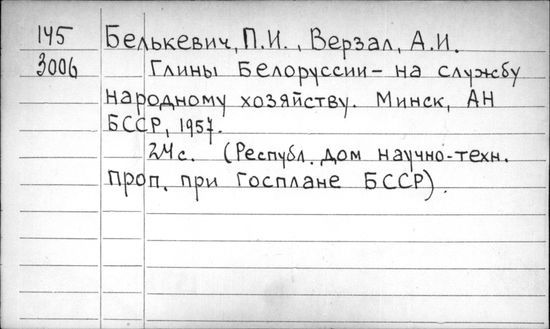 145 Белькевич, П.И., Верзал, А.И.
3006 Глины Белоруссии - на службу
народному хозяйству. Минск, АН
БССР, 1957.
24 с. (Республ. дом научно-техн.
проп. при Госплане БССР).